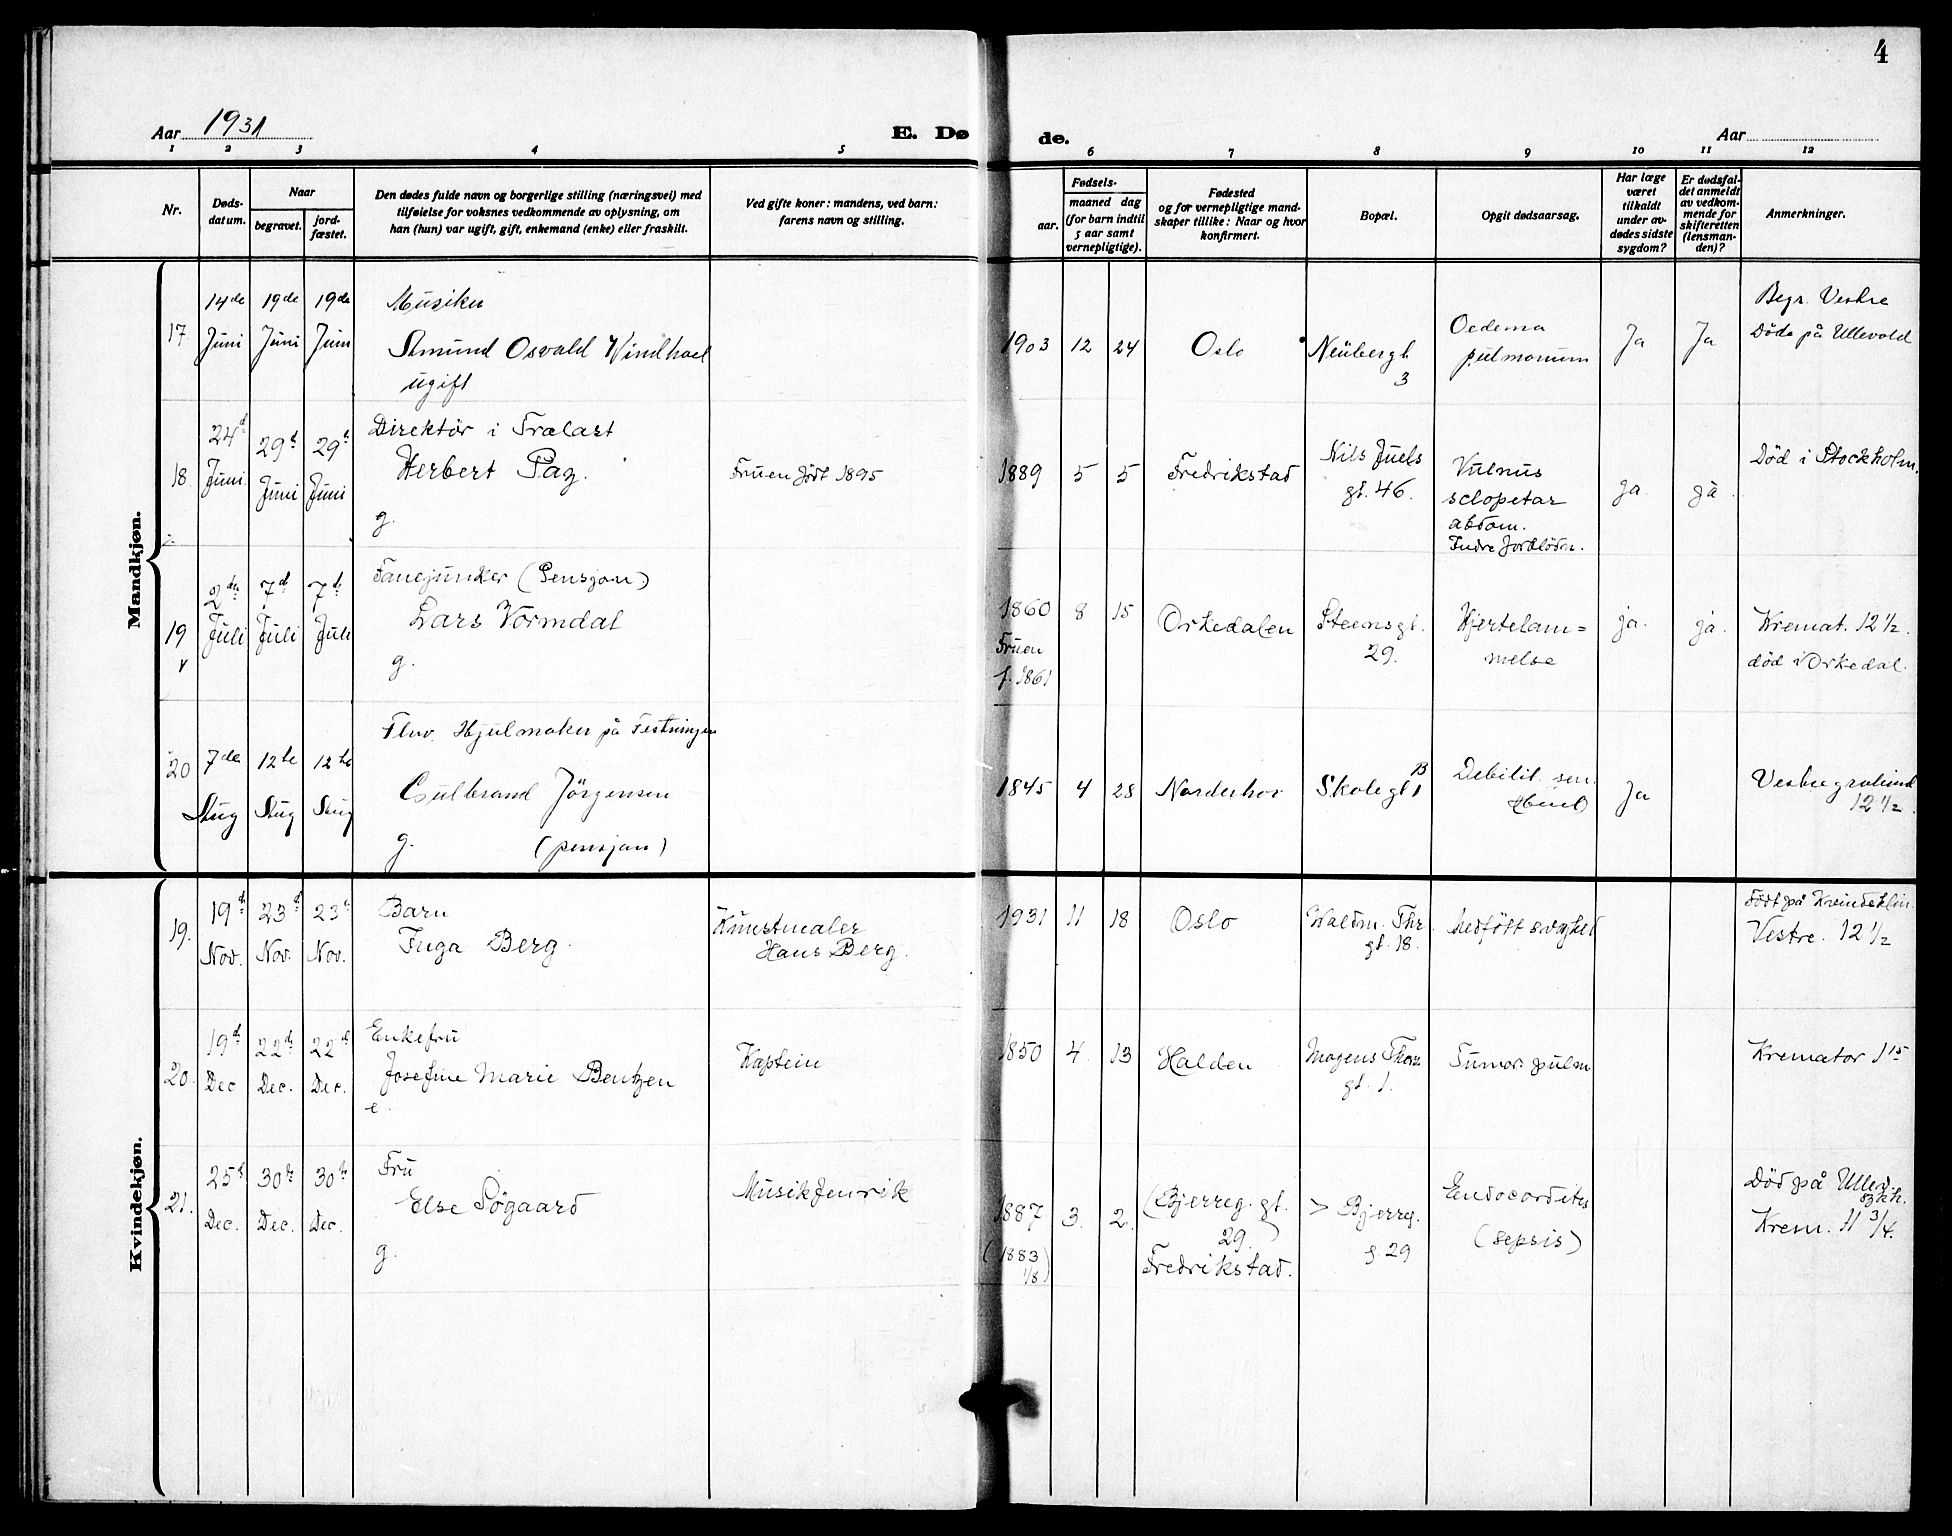 4
Aar 1931
E. Dø
de.
Aar
1 2 3 4 5 6 7 8 9 10 11 12
Nr.
Døds-
datum.
Naar
begravet.
jord-
fæstet.
Den dødes fulde navn og borgerlige stilling (næringsvei) med
tilføielse for voksnes vedkommende av oplysning, om
han (hun) var ugift, gift, enkemand (enke) eller fraskilt.
Ved gifte koner: mandens, ved barn:
farens navn og stilling.
Fødsels-
aar.
maaned dag
(for barn indtil
5 aar samt
vernepligtige).
Fødested
og for vernepligtige mand-
skaper tillike: Naar og hvor
konfirmert.
Bopæl.
Opgit dødsaarsag.
Har læge
været
tilkaldt
under av-
dødes sidste
sygdom?
Er dødsfal-
det anmeldt
av vedkom-
mende for
skifteretten
(lensman-
den)?
Anmerkninger.
Mandkjøn.
17
14de
Juni
19de
Juni
19de
Juni
Musiker
Amund Osvald
ugift
1903 12 24
Oslo
Neubergt
3
Oedema
pulmonum
Ja
Ja
Begr. Vestre
Døde på Ullevold
18
24d
Juni
29d
Juni
29d
Juni
Direktör i Trælast
Herbert Pag.
g.
Fruen födt 1895
1889 5 5
Fredrikstad
Nils Juels
gt. 46.
Vulnus
sclopetar
abdom.
ja
ja
Död i Stockholm.
19
2de
Juli
7d
Juli
7d
Juli
Fanejunker (Pensjon)
Lars Vormdal
g.
1860
Fruen
f. 1861
8 15
Orkedalen
Steensgt.
29.
Hjertelam=
melse
ja.
ja.
Kremat. 12 ½.
död i Orkedal.
20
7de
Aug
12te
Aug
12te
Aug
Hjulmaker på Festningen
Gulbrand Jörgensen
g. (pensjon)
1845 4 28
Norderhov
Skolegt 1
B
Debilit. sen.
Ja
12 ½
Kvindekjøn.
19.
19d
Nov.
23d
Nov.
23d
Nov.
Barn
Inga Berg.
Kunstmaler
Hans Berg.
1931 11 18
Oslo
Waldm. Thr
gt. 18.
Medfött svaghed
Født på Kvindeklin.
Vestre. 12 ½
20.
19d
Dec
22d
Dec.
22d
Dec.
Enkefru
Josefine Marie Bentzen
e.
Kaptein
1850 4. 13
Halden
Mogens Thors
gt. 1.
Tumor. pulm
Kremator 1 15
21.
25d
Dec.
30te
Dec.
30te
Dec.
Fru
Else Sögaard
g.
Musikfenrik
1887
(1883
1/8)
3. 2.
(Bjerreg. gt.
29.)
Fredrikstad.
> Bjerreg.
g. 29
Endocardites
(sepsis)
Död på Ullev.
sykh.
Krem. 11 3/4.